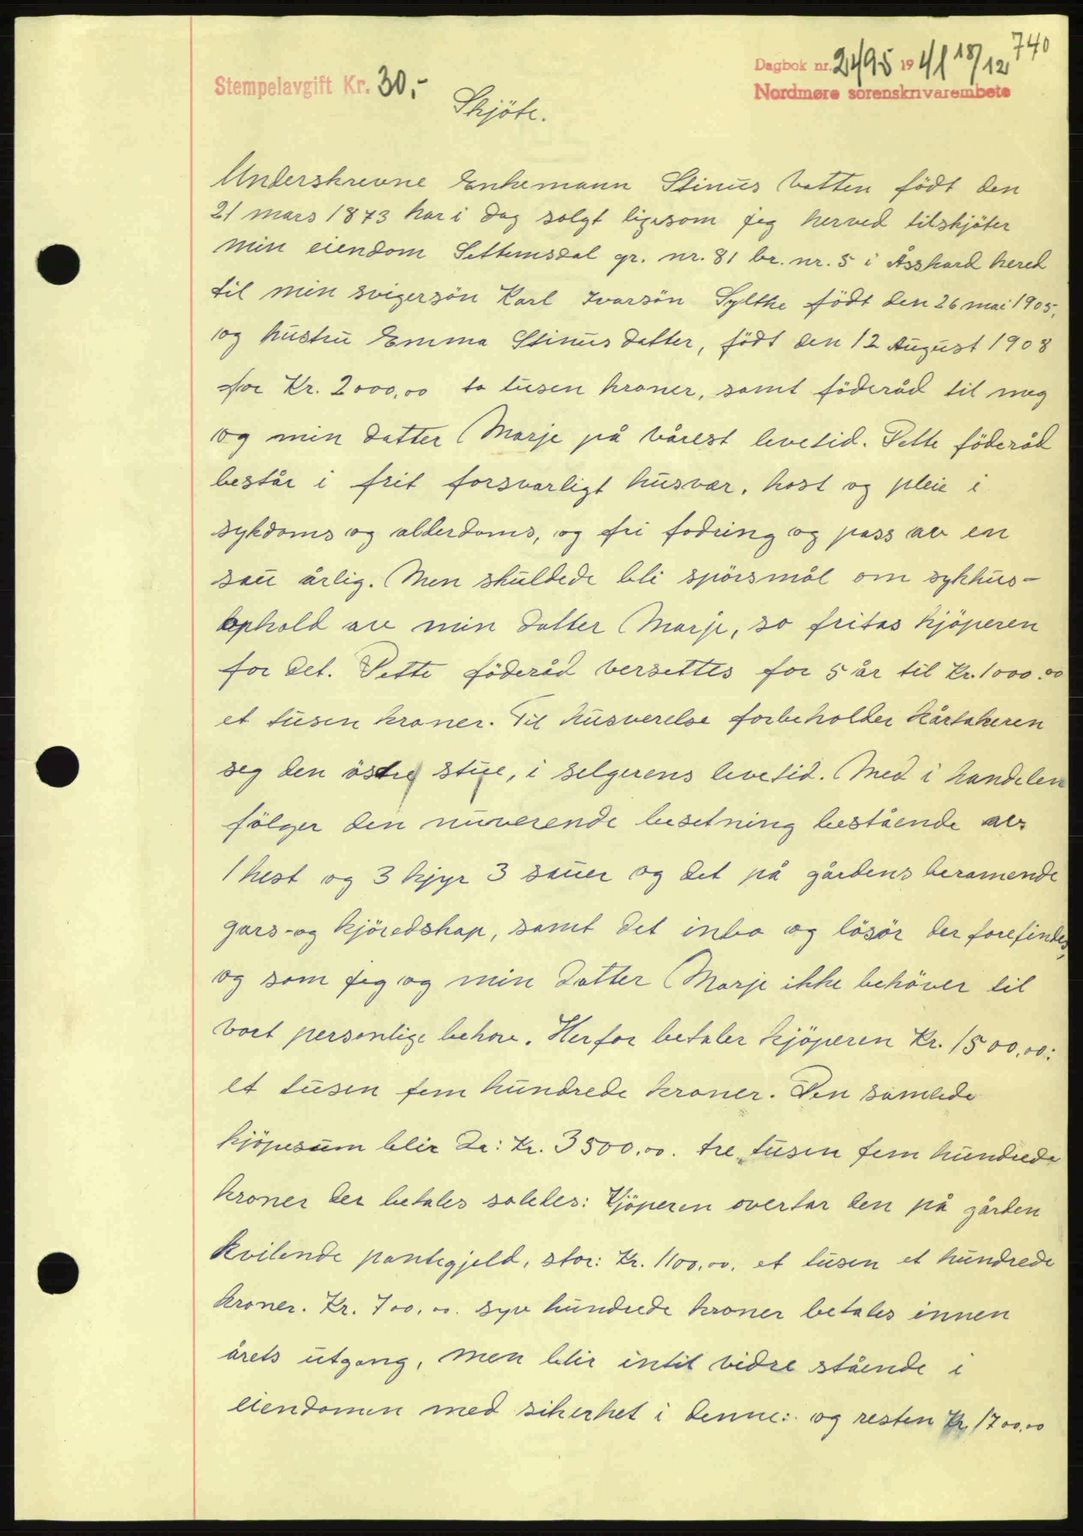 740
Dagbok nr. 2495 1941 18/12
Stempelavgift Kr. 30,-
Nordmøre sorenskrivarembete
Skjöte.
Underskrevne Enkemann Stinus Vatten födt den
21 mars 1873 har i dag solgt ligesom jeg herved tilskjöter
min eiendom Settemsdal gr. nr. 81 br. nr. 5 i Åsskard hered
til min svigersön Karl Ivarsön Sylthe födt den 26 mai 1905,
og hustru Emma Stinusdatter, födt den 12 August 1908
for Kr. 2000,00 to tusen kroner, samt föderåd til meg
og min datter Marje på vårest levetid. Dette föderåd
består i frit forsvarligt husvær, kost og pleie i
sykdoms og alderdoms, og fri fodring og pass av en
sau årlig. Men skuldede bli spörsmål om sykhus-
ophold av min datter Marje, so fritas kjöperen
for det. Dette föderåd versettes for 5 år til Kr. 1000.00
et tusen kroner. Til husverelse forbeholder kårtakeren
seg den östre stue, i selgerens levetid. Med i handelen
fölger den nuverende besetning bestående av
1 hest og 3 kjyr 3 sauer og det på gårdens beramende
gars- og kjöredskap, samt det inbo og lösör der forefindes,
og som jeg og min datter Marje ikke behöver til
vort personlige behov. Herfor betaler kjöperen Kr. 1500,00:
et tusen fem hundrede kroner. Den samlede
kjöpesum blir da: Kr. 3500,00. tre tusen fem hundrede
kroner der betales soledes: Kjöperen overtar den på gården
kvilende pantegjeld, stor: Kr. 1100,00. et tusen et hundrede
kroner. Kr. 700,00. syv hundrede kroner betales innen
årets utgang, men blir intil vidre stående i
eiendomen med sikerhet i denne: og resten Kr 1700,00